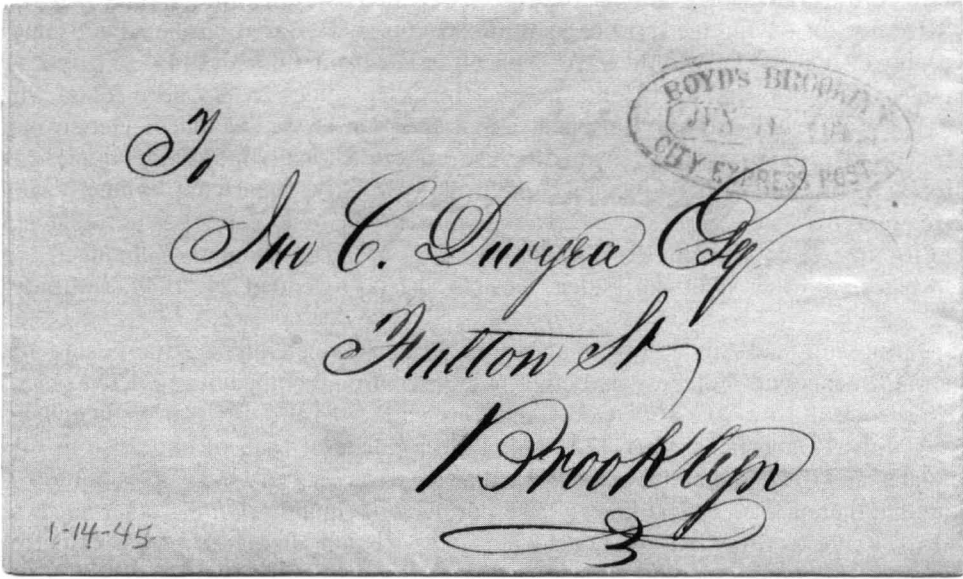 BOYD'S BROOKLYN
CITY EXPRESS POST
To
Jno C. Duryea Esq
Fulton St
Brooklyn
3
1-14-45